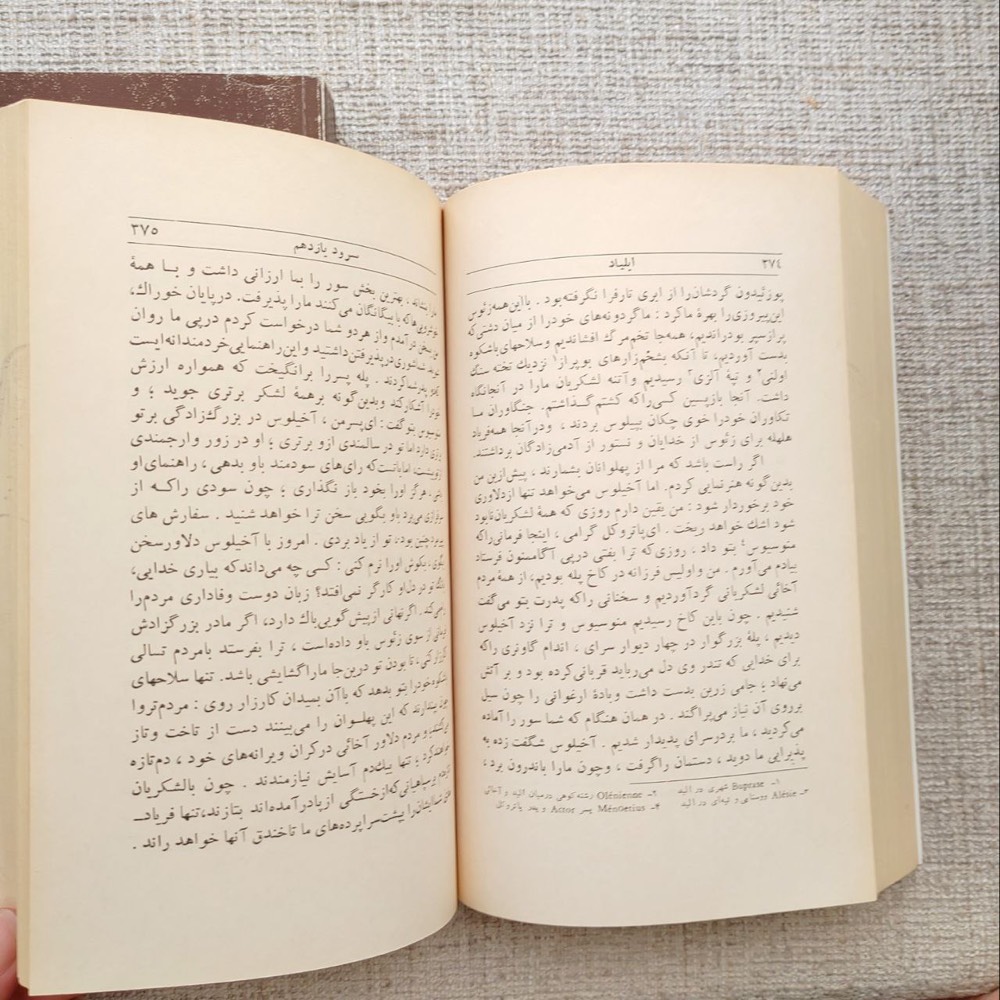 ۳۷٤ ایلیاد
پوزئیدون گردشان‌را از ابری تار فرا نگرفته‌بود . بااین‌همه‌زئوس
این‌پیروزی‌را بهرهٔ ما کرد : ما گردونه‌های خودرا از میان دشتی‌که
پراز سپر بود راندیم، همه‌جا تخم مرگ افشاندیم و سلاحهای باشکوه
بدست آوردیم، تا آنکه بشخم‌زارهای بوپراز۱ نزدیك تخته سنگ
اولنی۲ و تپهٔ آلزی۳ رسیدیم و آتنه لشکریان مارا در آنجا نگاه
داشت. آنجا بازپسین کسی‌را که کشتم گذاشتم. جنگاوران ما
تکاوران خودرا خوی چکان بپیلوس بردند ، و در آنجا همه فریاد
هلهله برای زئوس از خدایان و نستور از آدمی‌زادگان برداشتند.
اگر راست باشد که مرا از پهلوانان بشمارند ، پیش‌ازین من
بدین‌گونه هنرنمایی کردم. اما آخیلوس می‌خواهد تنها ازدلاوری
خود برخوردار شود : من یقین دارم روزی که همهٔ لشکریان نابود
شود اشك خواهد ریخت . ای‌پاتروکل گرامی ، اینجا فرمانی‌را که
منوسیوس٤ بتو داد ، روزی‌که ترا بفتی درپی آگاممنون فرستاد
بیادم می‌آورم . من و اولیس فرزانه در کاخ پله بودیم، از همهٔ مردم
آخائی لشکریانی گردآوردیم و سخنانی راکه پدرت بتو می‌گفت
شنیدیم . چون باین کاخ رسیدیم منوسیوس و ترا نزد آخیلوس
دیدیم ، پلهٔ بزرگوار در چهار دیوار سرای ، اندام گاونری راکه
برای خدایی که تندر وی دل می‌رباید قربانی‌کرده بود و بر آتش
می‌نهاد ؛ جامی زرین بدست داشت و بادهٔ ارغوانی را چون سیل
برروی آن نیاز می‌پراگند . در همان هنگام که شما سور را آماده
می‌کردید ، ما بردرسرای پدیدار شدیم . آخیلوس شگفت زده به
پذیرایی ما دوید ، دستمان راگرفت ، وچون مارا باندرون برد ،
۱ـ Buprase شهری در الید ۲ـ Olénienne رشته‌کوهی درمیان الید و آخائی
۳ـ Alésie روستای و تپه‌ای در الید ٤ـ Ménoetius پسر Actor و پدر پاتروکل
سرود یازدهم ۳۷۵
بهترین بخش سور را بما ارزانی داشت و با همهٔ
که با بیگانگان می‌کنند مارا پذیرفت. درپایان خوراك،
سخن درآمدم و از هردو شما درخواست کردم درپی ما روان
درپذیرفتن داشتید و این راهنمایی خردمندانه‌ایست
کردند . پله پسررا برانگیخت که همواره ارزش
آشکار کند و بدین‌گونه برهمهٔ لشکر برتری جوید ؛ و
بتو گفت : ای‌پسرمن ، آخیلوس در بزرگ‌زادگی برتو
دارد اما تو در سالمندی ازو برتری ؛ او در زور وارجمندی
اما باتست‌که رای‌های سودمند باو بدهی ، راهنمای او
هرگز اورا بخود باز نگذاری ؛ چون سودی راکه از
می‌برد باو بگویی سخن ترا خواهد شنید . سفارش های
چنین بود، تو از یاد بردی . امروز با آخیلوس دلاور سخن
بگوی، بکوش اورا نرم کنی : کسی چه می‌داند که بیاری خدایی،
تو در دل او کارگر نمی‌افتد؟ زبان دوست وفاداری مردم‌را
می‌کند. اگر نهانی از پیش‌گویی باك دارد، اگر مادر بزرگزادش
از سوی زئوس باو داده‌است ، ترا بفرستد بامردم تسالی
کنی، تا بودن تو درین‌جا ما را گشایشی باشد. تنها سلاحهای
خودرا بتو بدهد که باآن بمیدان کارزار روی : مردم‌تروا
پندارند که این پهلوان را می‌بینند دست از تاخت وتاز
و مردم دلاور آخائی درکران ویرانه‌های خود ، دم‌تازه
کرد ؛ تنها یك‌دم آسایش نیازمندند . چون بالشکریان
سپاهیانی که از خستگی از پادرآمده‌اند بتازند، تنها فریاد
را بپشت سراپرده‌های ما تاخندق آنها خواهد راند .